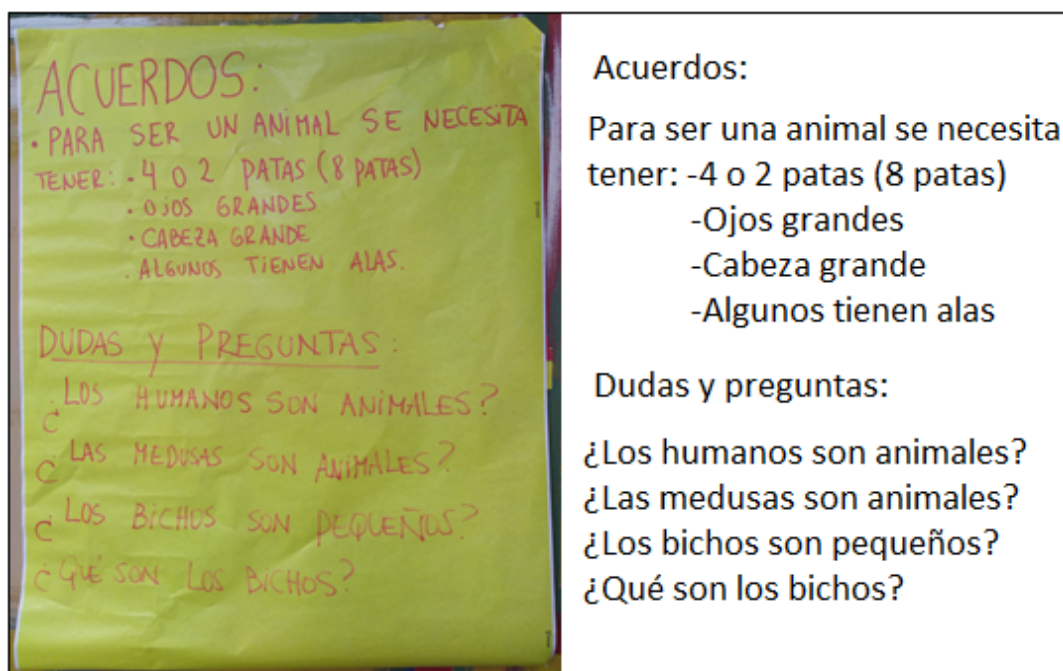 ACUERDOS:
• PARA SER UN ANIMAL SE NECESITA
TENER: - 4 O 2 PATAS (8 PATAS)
• OJOS GRANDES
• CABEZA GRANDE
. ALGUNOS TIENEN ALAS.
DUDAS Y PREGUNTAS:
¿LOS HUMANOS SON ANIMALES?
¿LAS MEDUSAS SON ANIMALES?
¿LOS BICHOS SON PEQUEÑOS?
¿QUÉ SON LOS BICHOS?
Acuerdos:
Para ser una animal se necesita
tener: -4 o 2 patas (8 patas)
-Ojos grandes
-Cabeza grande
-Algunos tienen alas
Dudas y preguntas:
¿Los humanos son animales?
¿Las medusas son animales?
¿Los bichos son pequeños?
¿Qué son los bichos?